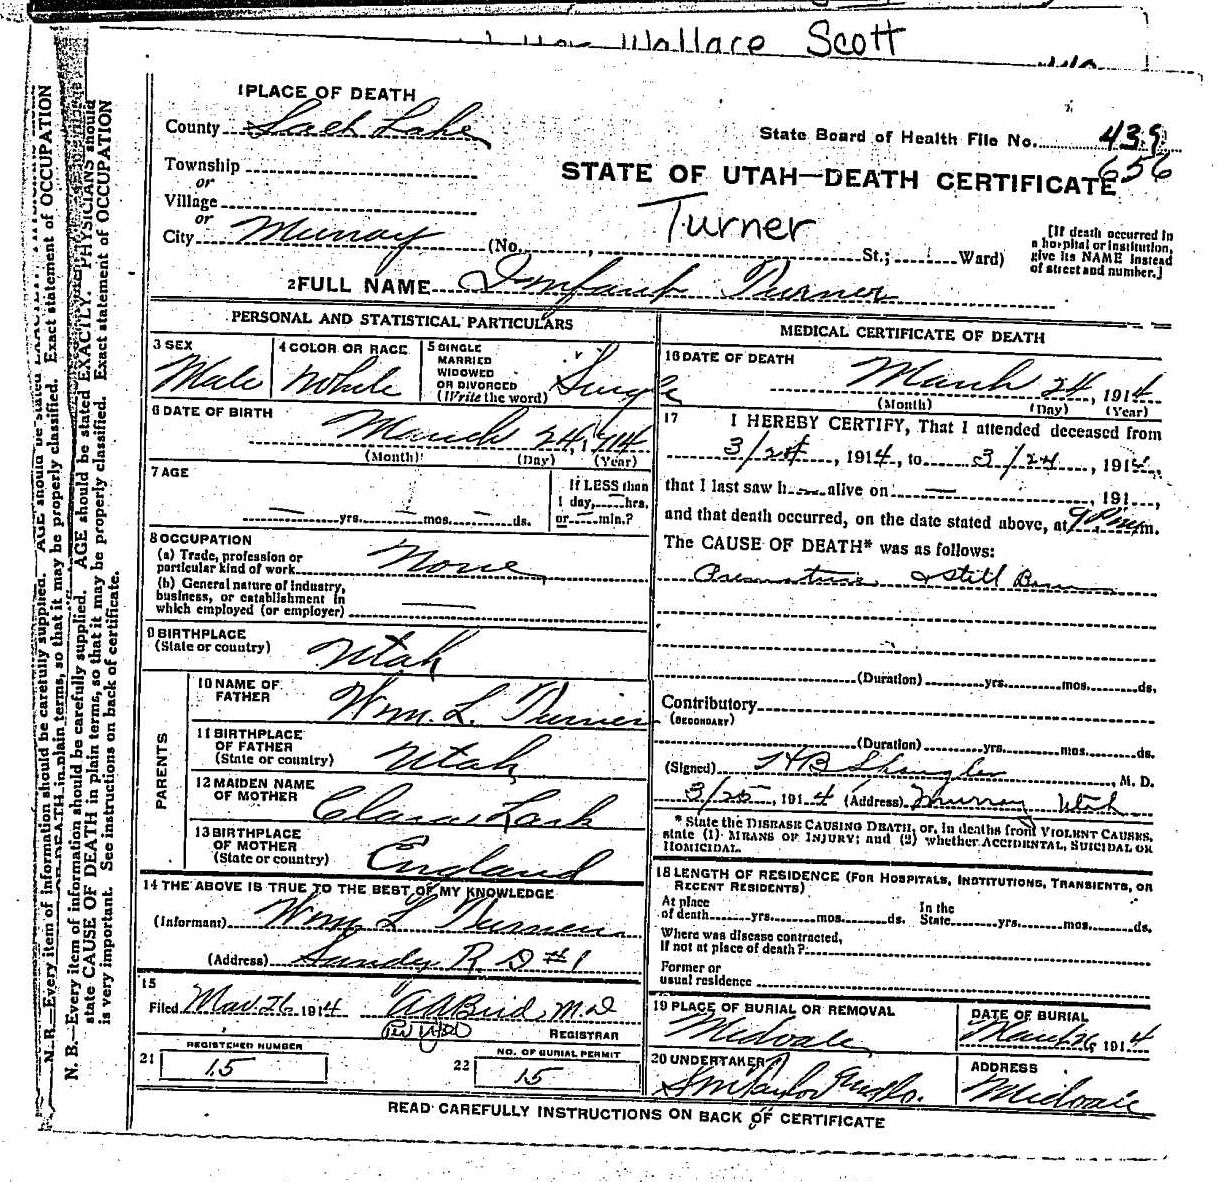 Wallace Scott
1 PLACE OF DEATH
County Salt Lake
State Board of Health File No. 439
656
Township
or
Village
or
City Murray (No. St.; Ward)
STATE OF UTAH—DEATH CERTIFICATE
Turner
[If death occurred in
a hospital or institution,
give its NAME instead
of street and number.]
2 FULL NAME Infant Turner
PERSONAL AND STATISTICAL PARTICULARS
3 SEX
Male
4 COLOR OR RACE
White
5 SINGLE
MARRIED
WIDOWED
OR DIVORCED
(Write the word)
Single
6 DATE OF BIRTH
March 24, 1914
(Month) (Day) (Year)
7 AGE
yrs. mos. ds.
If LESS than
1 day, hrs.
or min.?
8 OCCUPATION
(a) Trade, profession or
particular kind of work None
(b) General nature of industry,
business, or establishment in
which employed (or employer)
9 BIRTHPLACE
(State or country) Utah
PARENTS
10 NAME OF
FATHER Wm. L. Turner
11 BIRTHPLACE
OF FATHER
(State or country) Utah
12 MAIDEN NAME
OF MOTHER Clara
13 BIRTHPLACE
OF MOTHER
(State or country) England
14 THE ABOVE IS TRUE TO THE BEST OF MY KNOWLEDGE
(Informant) Wm L Turner
(Address) Sandy R D #1
15
Filed Mar. 26 1914 Bird, M D
REGISTRAR
REGISTERED NUMBER
21 15
NO. OF BURIAL PERMIT
22 15
MEDICAL CERTIFICATE OF DEATH
16 DATE OF DEATH
March 24, 1914
(Month) (Day) (Year)
17 I HEREBY CERTIFY, That I attended deceased from
3/24, 1914, to 3/24, 1914,
that I last saw h alive on , 191 ,
and that death occurred, on the date stated above, at 9 P m.
The CAUSE OF DEATH* was as follows:
Premature & Still Born
(Duration) yrs. mos. ds.
Contributory
(SECONDARY)
(Duration) yrs. mos. ds.
(Signed) , M. D.
3/25, 1914 (Address) Murray Utah
* State the DISEASE CAUSING DEATH, or, in deaths from VIOLENT CAUSES,
state (1) MEANS OF INJURY; and (2) whether ACCIDENTAL, SUICIDAL OR
HOMICIDAL.
18 LENGTH OF RESIDENCE (FOR HOSPITALS, INSTITUTIONS, TRANSIENTS, OR
RECENT RESIDENTS)
At place
of death yrs. mos. ds.
In the
State yrs. mos. ds.
Where was disease contracted,
if not at place of death?
Former or
usual residence
19 PLACE OF BURIAL OR REMOVAL
Midvale
DATE OF BURIAL
March 26, 1914
20 UNDERTAKER
ADDRESS
Midvale
READ CAREFULLY INSTRUCTIONS ON BACK OF CERTIFICATE
N. B.—Every item of information should be carefully supplied. AGE should be stated EXACTLY. PHYSICIANS should
state CAUSE OF DEATH in plain terms, so that it may be properly classified. Exact statement of OCCUPATION
is very important. See instructions on back of certificate.
N. B.—Every item of information should be carefully supplied. AGE should be stated
DEATH in plain terms, so that it may be properly classified. Exact statement of OCCUPATION